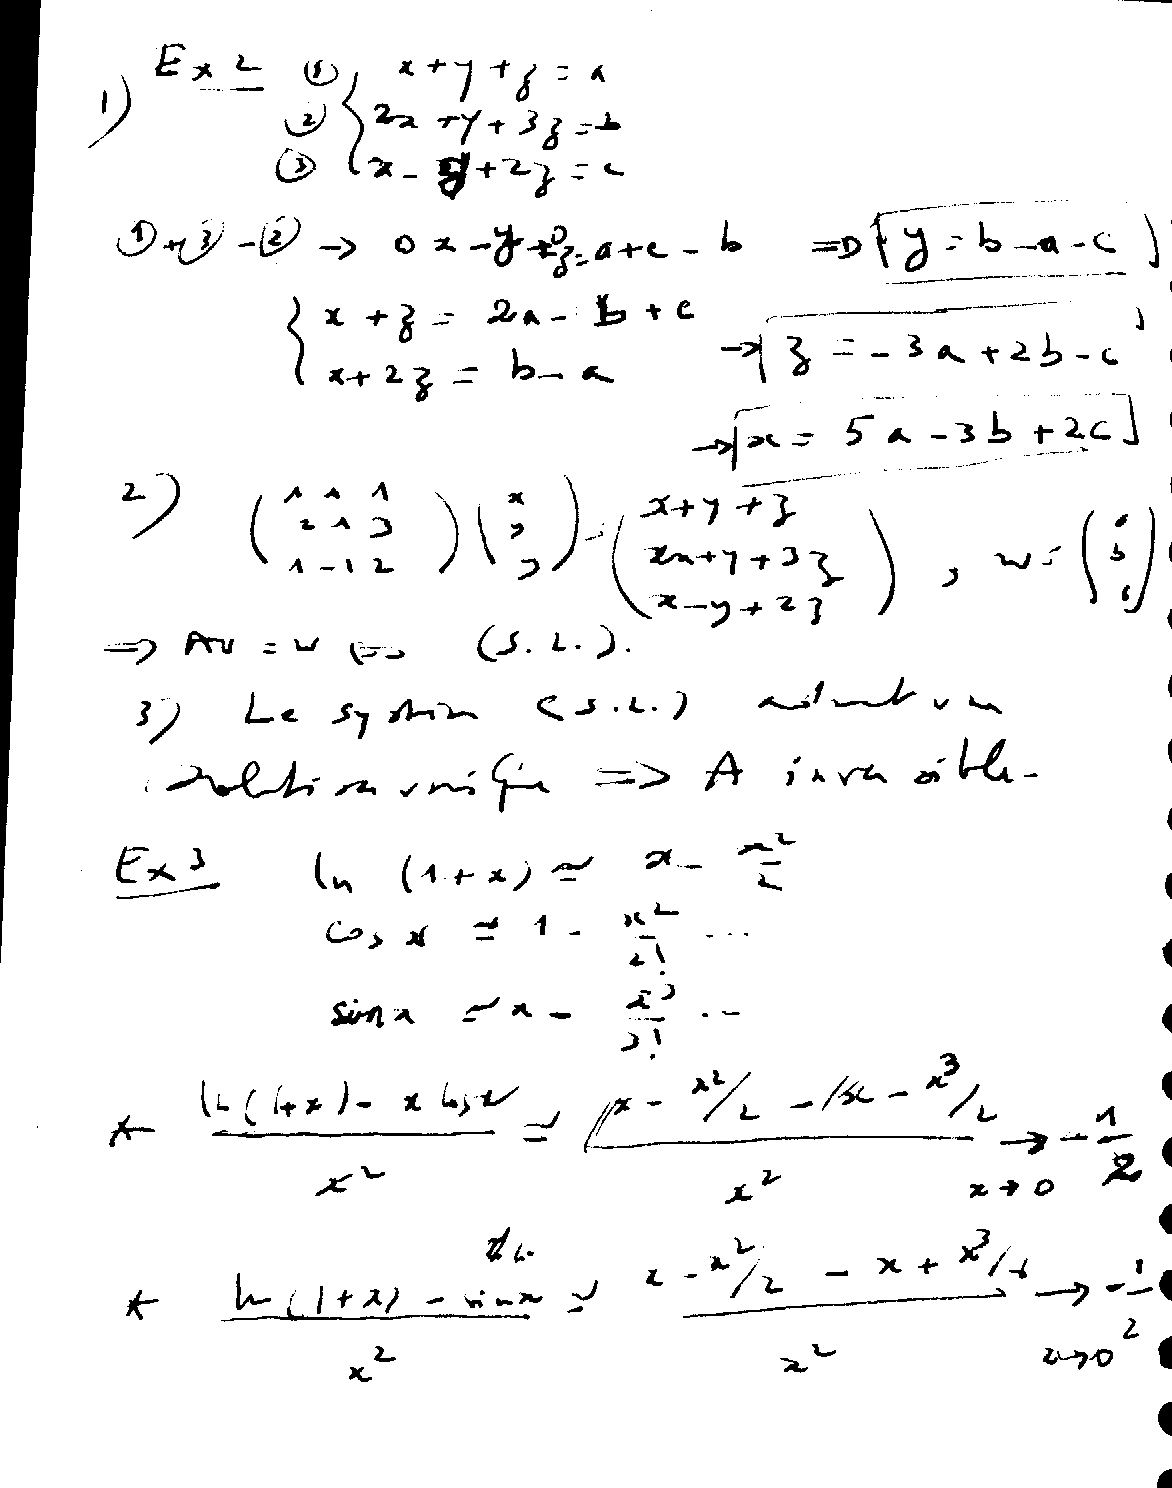 1) Ex 2 ① x + y + z = a
② 2x + y + 3z = b
③ x - y + 2z = c
① + ③ - ② → 0x - y + 0z = a + c - b ⇒ y = b - a - c
{ x + z = 2a - b + c
→ z = -3a + 2b - c
x + 2z = b - a
→ x = 5a - 3b + 2c
2) (1 1 1 / 2 1 3 / 1 -1 2) (x / y / z) = (x + y + z / 2x + y + 3z / x - y + 2z), w = (a / b / c)
⇒ AV = W ⇔ (S.L.).
3) Le système (S.L.) admet un
solution unique ⇒ A inversible.
Ex 3 ln (1 + x) ≃ x - x²/2
cos x ≃ 1 - x²/2! ...
sin x ≃ x - x³/3! ...
* (ln(1+x) - x cos x)/x² ≃ (x - x²/2 - x - x³/2)/x² → -1/2
x → 0
* (ln(1+x) - sin x)/x² ≃ (x - x²/2 - x + x³/6)/x² → -1/2
x → 0